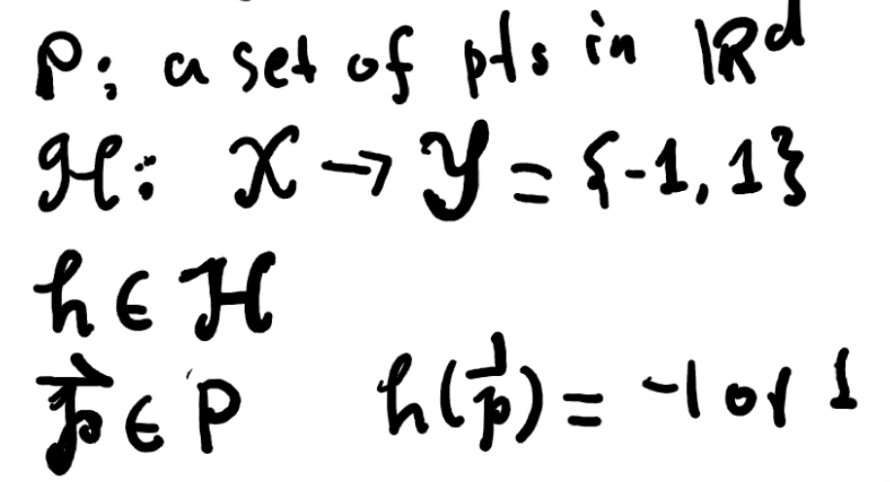 P: a set of pts in ℝᵈ
ℋ: 𝒳 → 𝒴 = {-1, 1}
h ∈ ℋ
p⃗ ∈ P h(p⃗) = -1 or 1